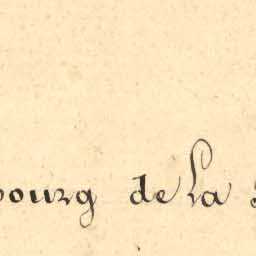 bourg de La